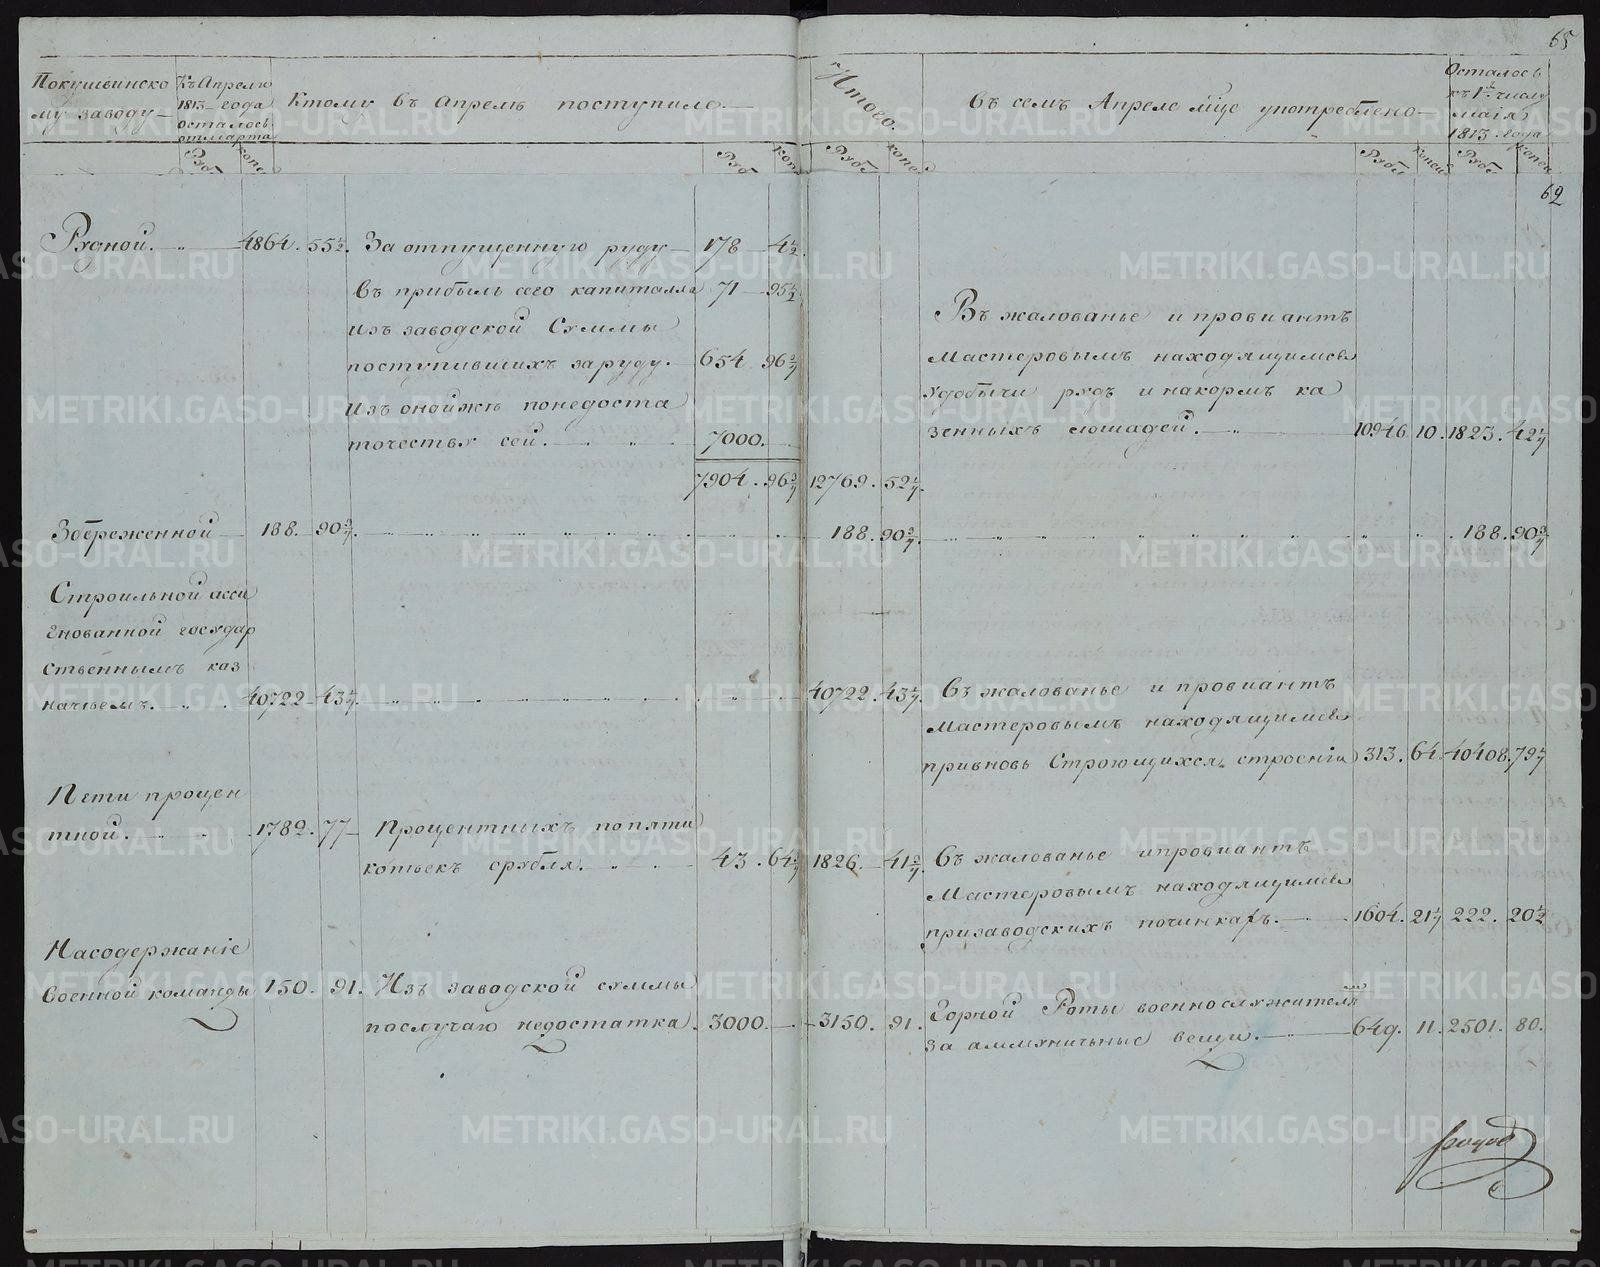 65
Покушвинско
му заводу —
Къ Апрелю
1813 – года
осталось
отмарта
Ктому въ Апрелѣ поступило. —
Итого.
въ семъ Апреле мце употреблено —
Осталось
къ 1му числу
маія
1813 – года
Рубл копѣ
Рубл копѣ
Рубл копей
Рубли копей
Рубл копей
62
Рудной. — „ — 4864. 55½.
За отпущенную руду — 178 — 4½.
въ прибыль сего капиталла 71 — 95½
изъ заводской Суммы
поступившихъ заруду. — 654 96 3/7
Изъ онойжѣ понедоста
точеству сей. — „ — „ — 7000. —
7904. 96 3/7 12769. 52 1/7.
Въ жалованье и провиантъ
Мастеровымъ находящимся
удобычи рудъ и накормъ ка
зенныхъ лошадей. — „ — 10946 10. 1823. 42 1/7
Збереженной — 188. 90 3/7. 188. 90 3/7. 188. 90 3/7
Строильной асси
гнованной государ
ственнымъ каз
начѣемъ. — „ — 40722 – 43 1/7. 40722. 43 1/7.
Въ жалованье и провиантъ
Мастеровымъ находящимся
привновь Строющихся строеніи 313. 64. 40408. 79 1/7
Пети процен
тной. — „ — 1782. 77 —
Процентныхъ попяти
копѣекъ срубля. — „ — 43. 64 3/7 1826. — 41 3/7.
Въ жалованье ипровиантъ
Мастеровымъ находящимся
призаводскихъ починкахъ. — 1604. 21 1/7 222. 20½
Насодержаніе
Военной команды 150. 91.
Изъ заводской суммы
послучаю недостатка. 3000. — 3150. 91.
Горной Роты военнослужителямъ
За аммуничьные вещи. — 649. 11. 2501. 80.
METRIKI.GASO-URAL.RU